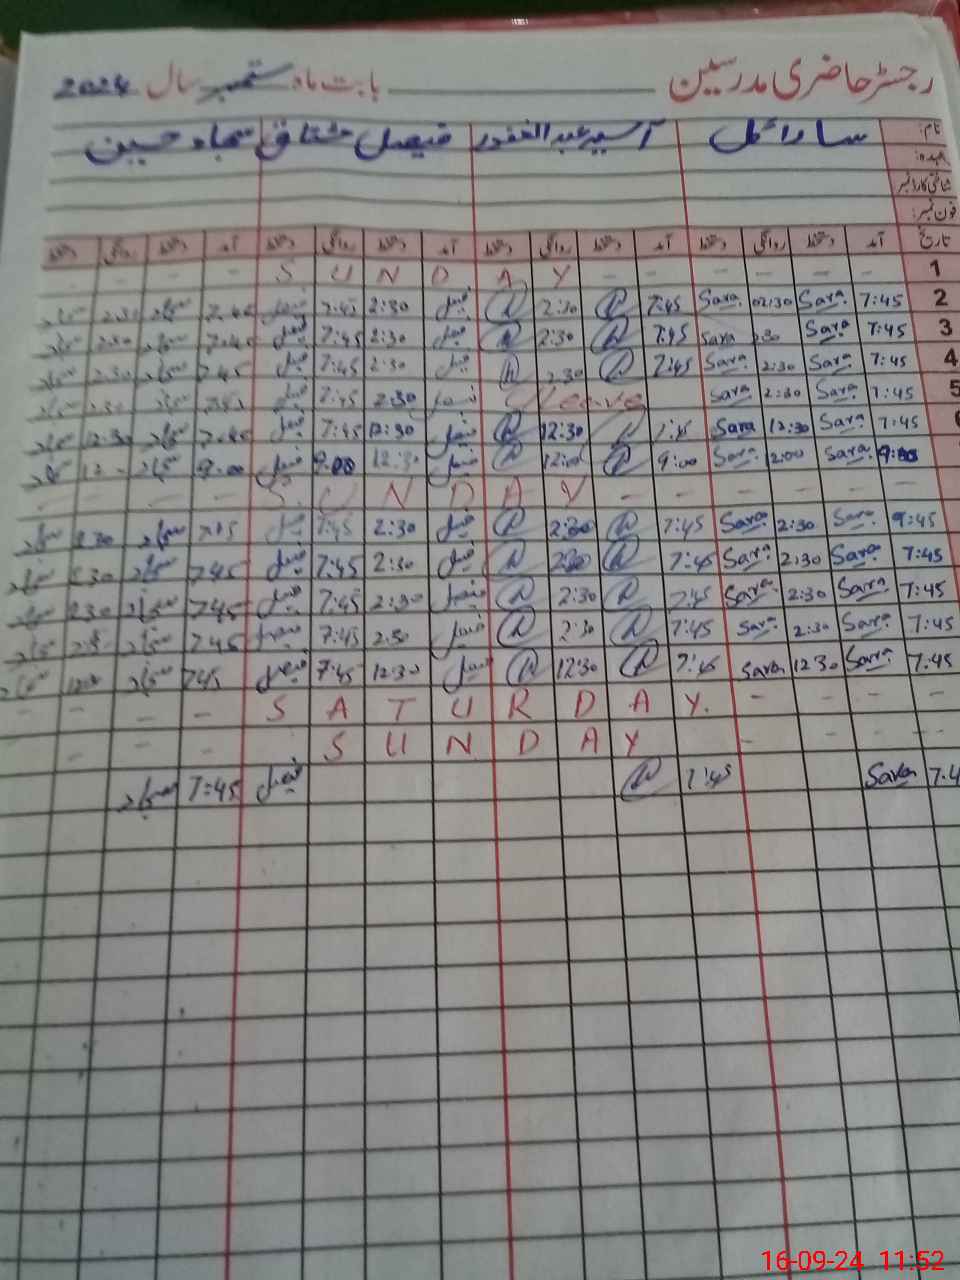 رجسٹر حاضری مدرسین بابت ماہ ستمبر سال 2024
نام: سارا گل آسیہ عبدالغفور فیصل مشتاق سجاد حسین
عہدہ:
شناختی کارڈ نمبر
فون نمبر:
تاریخ آمد دستخط روانگی دستخط آمد دستخط روانگی دستخط آمد دستخط روانگی دستخط آمد دستخط روانگی دستخط
1 - - - S U N D A Y - - -
2 7:45 Sara 02:30 Sara 7:45 2:30 فیصل 2:30 7:45 فیصل 7:45 سجاد 2:30 سجاد
3 7:45 Sara Sara 7:45 2:30 فیصل 2:30 7:45 فیصل 7:45 سجاد 2:30 سجاد
4 7:45 Sara 2:30 Sara 7:45 2:30 فیصل 2:30 7:45 فیصل 7:45 سجاد 2:30 سجاد
5 7:45 Sara 2:30 Sara Leave فیصل 2:30 7:45 فیصل سجاد 2:30 سجاد
6 7:45 Sara 12:30 Sara 7:45 12:30 فیصل 12:30 7:45 فیصل 7:45 سجاد 12:30 سجاد
9:00 Sara 12:00 Sara 9:00 12:00 فیصل 12:30 9:00 فیصل 9:00 سجاد سجاد
- - S U N D A Y - - - -
9:45 Sara 2:30 Sara 7:45 2:30 فیصل 2:30 7:45 فیصل 7:45 سجاد 2:30 سجاد
7:45 Sara 2:30 Sara 7:45 2:30 فیصل 2:30 7:45 فیصل 7:45 سجاد 2:30 سجاد
7:45 Sara 2:30 Sara 7:45 2:30 فیصل 2:30 7:45 فیصل 7:45 سجاد 2:30 سجاد
7:45 Sara 2:30 Sara 7:45 2:30 فیصل 2:30 7:45 فیصل 7:45 سجاد سجاد
7:45 Sara 12:30 Sara 7:45 12:30 فیصل 12:30 7:45 فیصل 7:45 سجاد سجاد
- - - - S A T U R D A Y. - - - -
- - - - S U N D A Y - - -
7.4 Sara 7:45 فیصل 7:45 سجاد
16-09-24 11:52